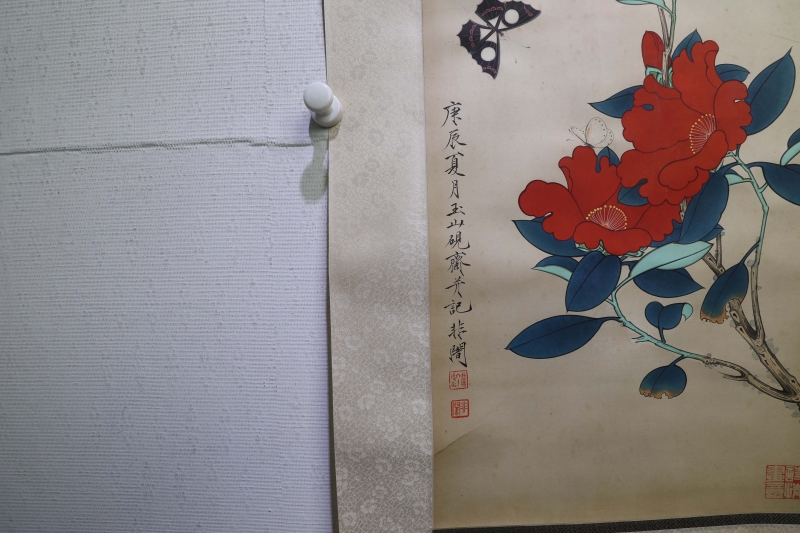 庚辰夏月玉山砚斋并記非闇